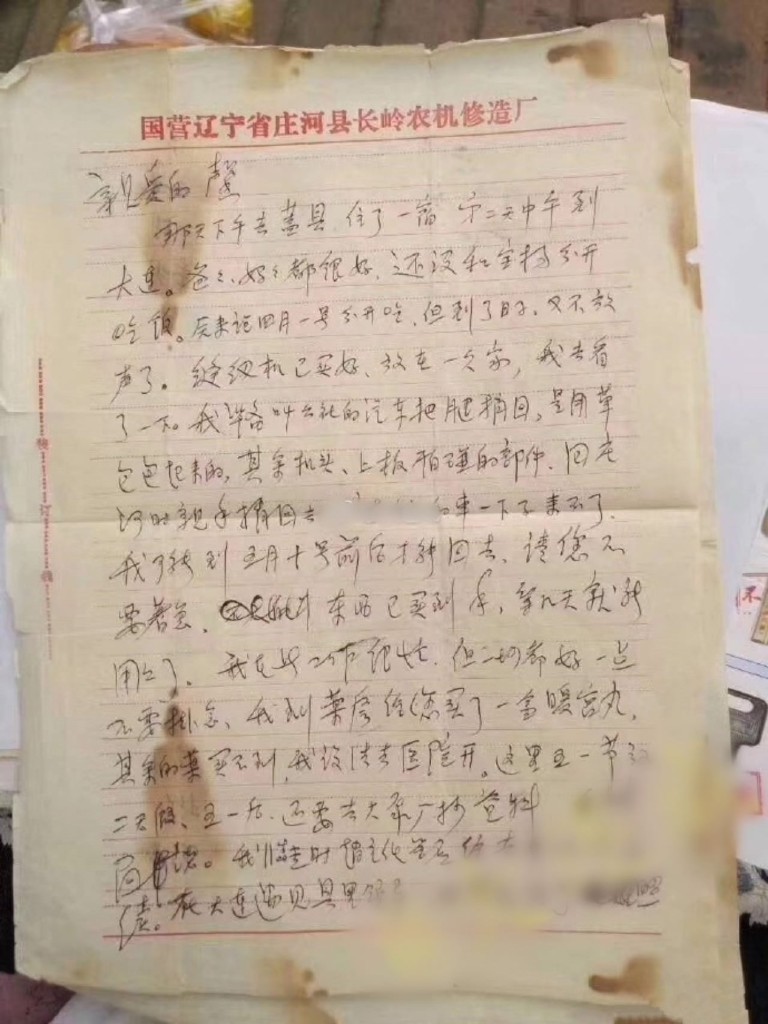 国营辽宁省庄河县长岭农机修造厂
亲爱的馨
那天下午去盖县,住了一宿 第二天中午到
大连。爸爸、妈妈都很好,还没和宝
吃饭。后来说四月一号分开吃,但到了日子,又不放
声了。缝纫机已买好、放在一 家,我去看
了一下。我准备叫公社的汽车把腿捎回,是用草
包包起来的,其余机头、上板 的部件,回庄
河时亲手捎回去 一下子来不了
我可能到五月十号前后才能回去、请您不
要着急, 东西已买到手,等几天就能
用上了。我在此工作很忙,但一切都好一点
不要挂念、我到药房给您买了一盒暖宫丸,
其余的药买不到,我设法去医院开。这里五一节放
二天假、五一后,还要去 厂抄资料
我临走时
在大连遇见